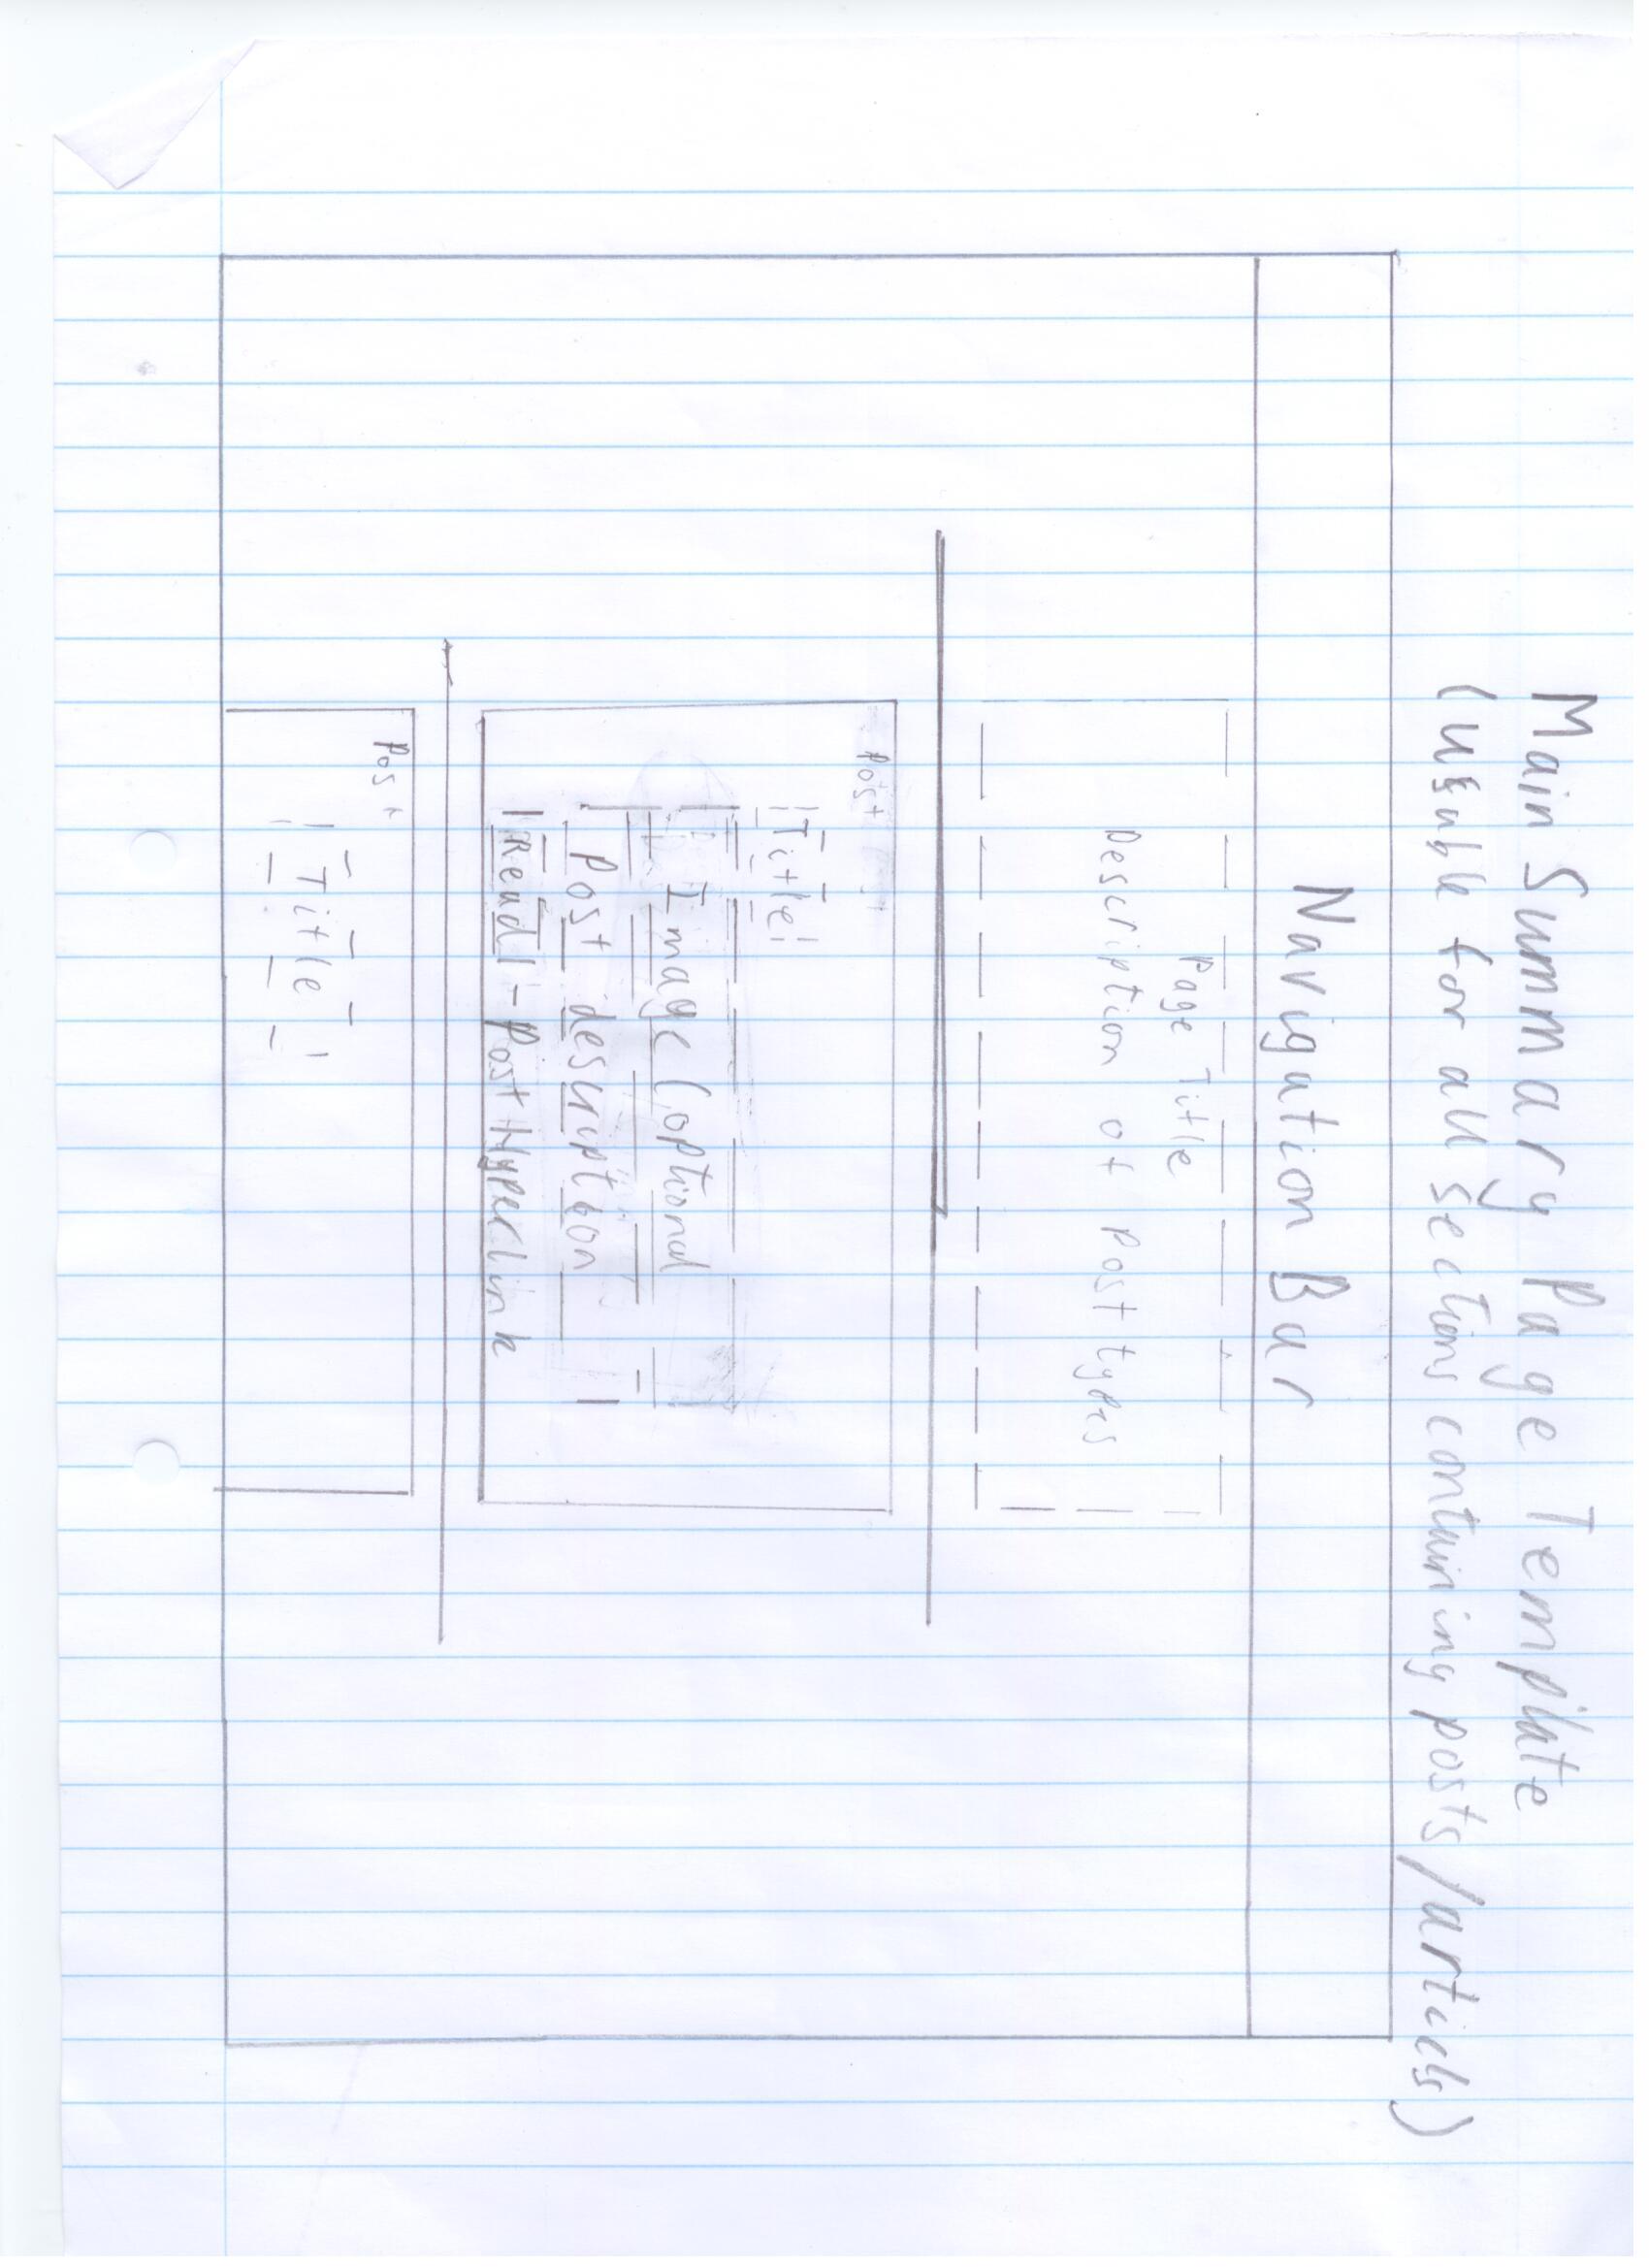 Main Summary Page Template
(Usable for all sections containing posts/articels)
Navigation Bar
Page Title
Description of Post types
Post
Title
Image (optional
Post description
Read - Post Hyperlink
Post
Title